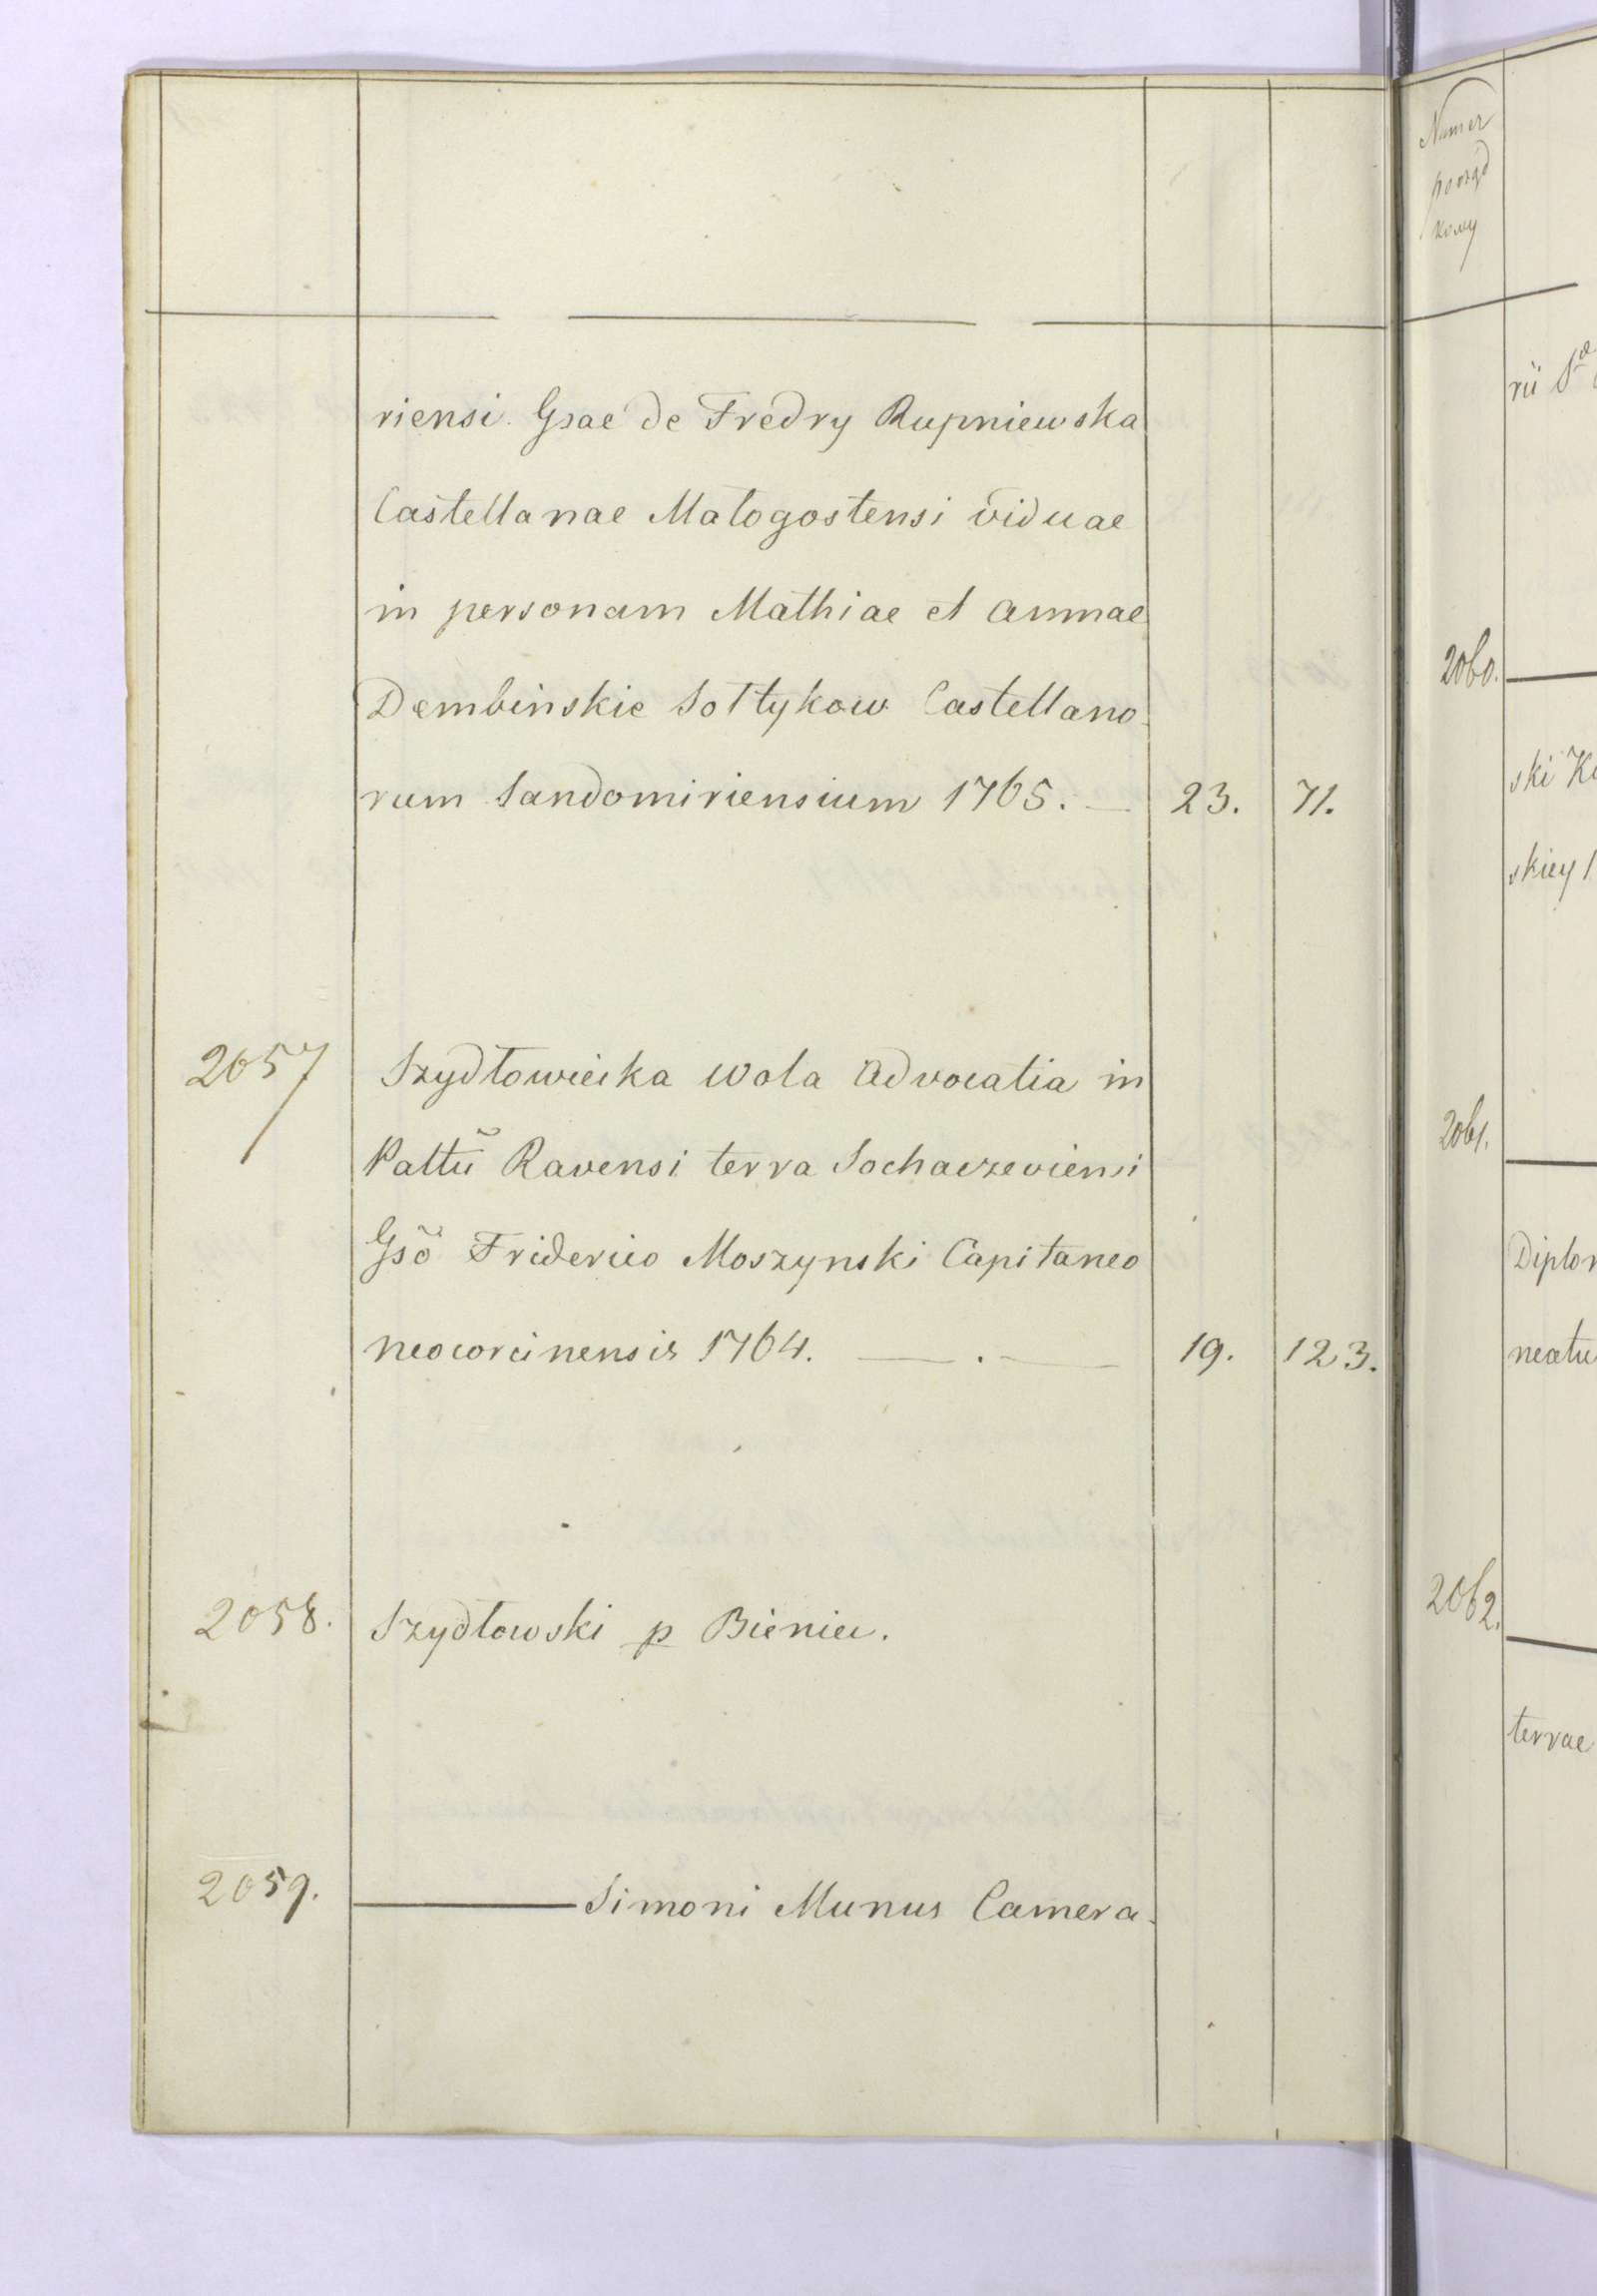 riensi. Gsae de Fredry Rupniewska
Castellanae Małogostensi viduae
in personam Mathiae et Annae
Dembinskie Sołtykow Castellano-
rum Sandomiriensium 1765. — 23. 71.
2057 Szydłowiecka Wola Advocatia in
Palttū Ravensi terra Sochaczeviensi
Gsō Friderico Moszynski Capitaneo
neocorcinensis 1764. — . — 19. 123.
2058. Szydłowski p Bieniec.
2059. — Simoni Munus Camera-
Numer
porząd
kowy
rii
2060.
ski
skiey
2061.
Diplo
neatu
2062.
terrae